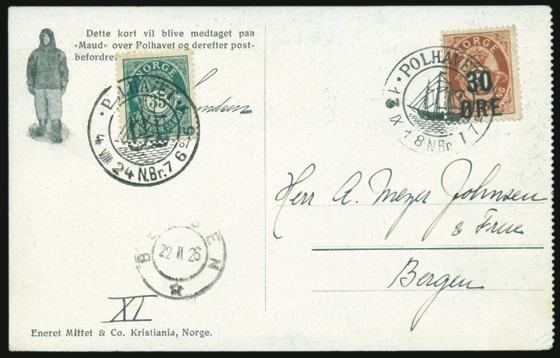 Dette kort vil blive medtaget paa
„Maud“ over Polhavet og derefter post-
befordret
NORGE
35
POLHAVET
4 VIII 24 N.Br. 76
NORGE
30
ØRE
POLHAVET
18 N.Br.
Herr A. Meyer Johnsen
& Frue
Bergen
BERGEN
22 II 26
XI
Eneret Mittet & Co. Kristiania, Norge.